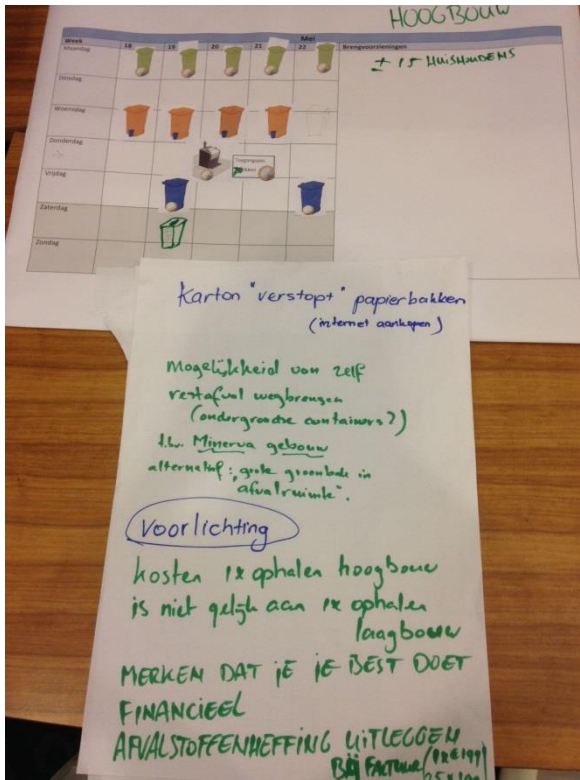 HOOGBOUW
Mei
Week 18 19 20 21 22 Brengvoorzieningen
Maandag
± 15 HUISHOUDENS
Dinsdag
Woensdag
Donderdag
Toegangspas
Vrijdag
Zaterdag
Zondag
Karton "verstopt" papierbakken
(internet aankopen)
Mogelijkheid van zelf
restafval wegbrengen
(ondergrondse containers?)
t.b.v. Minerva gebouw
alternatief: "grote groenbak in
afvalruimte".
Voorlichting
kosten 1x ophalen hoogbouw
is niet gelijk aan 1x ophalen
laagbouw
MERKEN DAT JE JE BEST DOET
FINANCIEEL
AFVALSTOFFENHEFFING UITLEGGEN
BIJ FACTUUR